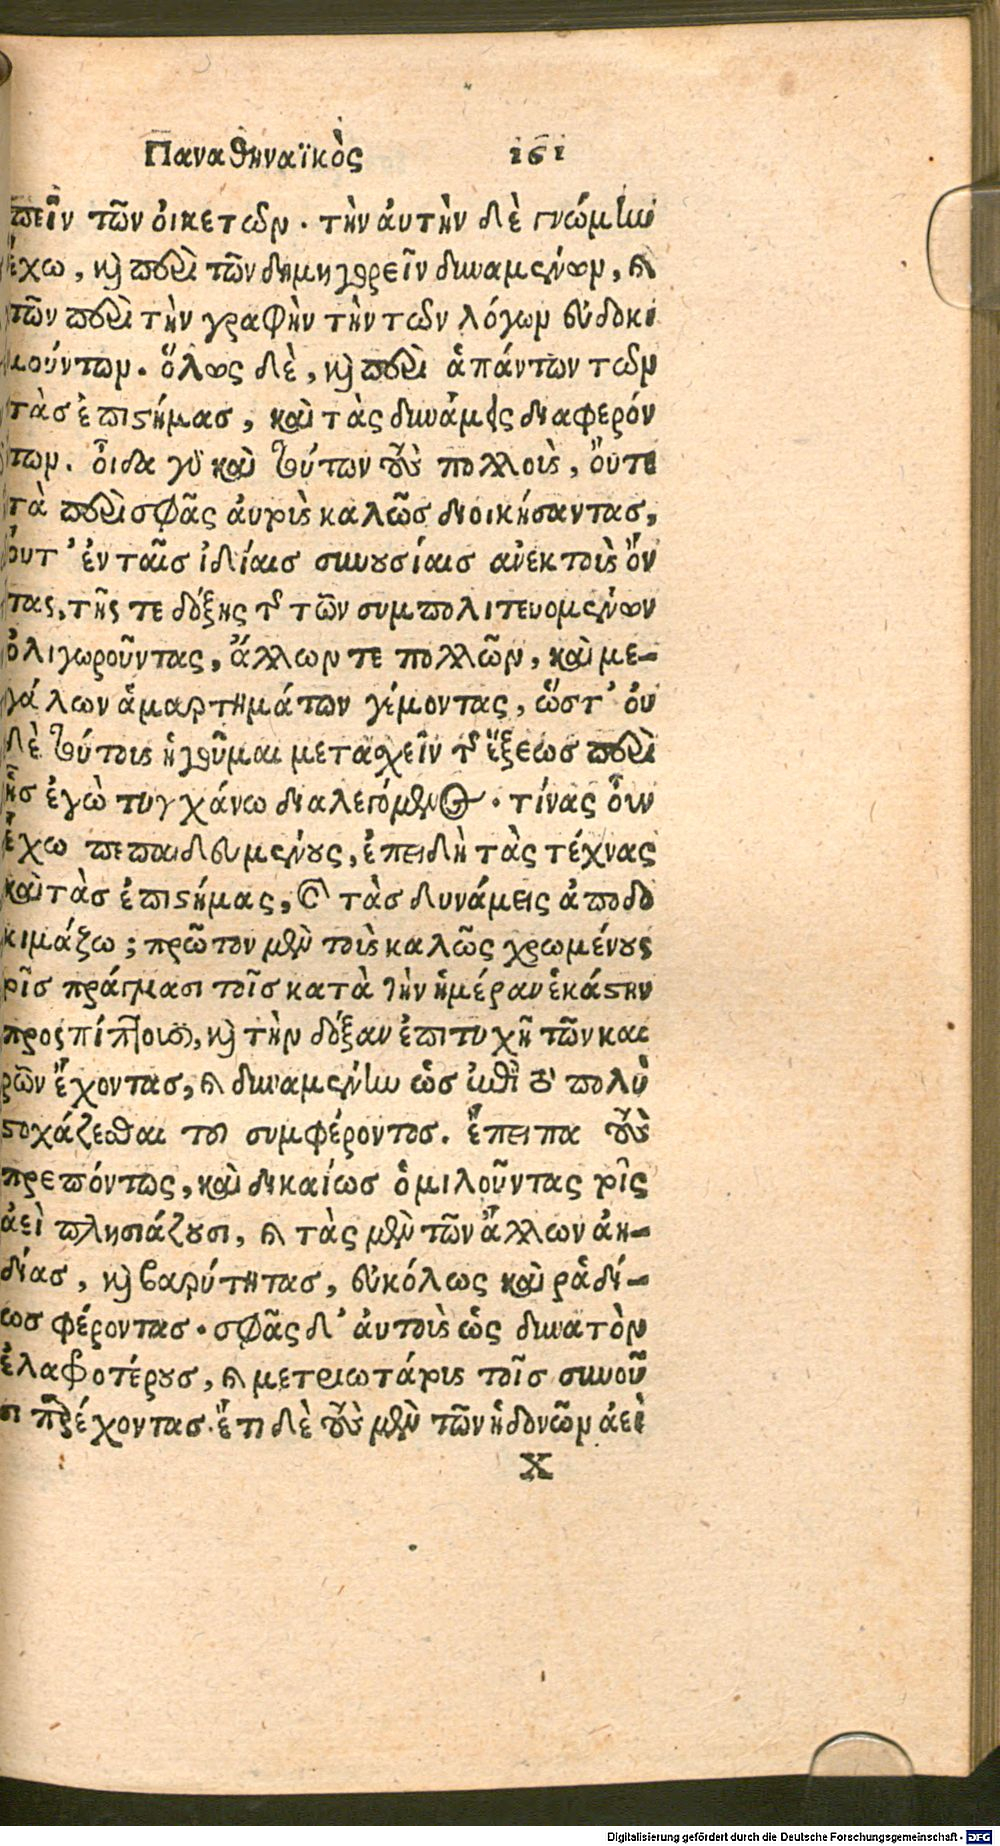 Παναθηναϊκὸς 161
πεῖν τῶν οἰκετῶν. τὴν αὐτὴν δὲ γνώμην
ἔχω, καὶ περὶ τῶν δημηγορεῖν δυναμένων, καὶ
τῶν περὶ τὴν γραφὴν τὴν τῶν λόγων εὐδοκι
μούντων. ὅλως δὲ, καὶ περὶ ἁπάντων τῶν
τὰς ἐπιστήμας, καὶ τὰς δυνάμεις διαφερόν
των. οἶδα γὰρ καὶ τούτων τοὺς πολλοὺς, οὔτε
τὰ περὶ σφᾶς αὐτοὺς καλῶς διοικήσαντας,
οὔτ' ἐν ταῖς ἰδίαις συνουσίαις ἀνεκτοὺς ὄν
τας, τῆς τε δόξης τῆς τῶν συμπολιτευομένων
ὀλιγωροῦντας, ἄλλων τε πολλῶν, καὶ με-
γάλων ἁμαρτημάτων γέμοντας, ὥστ' οὐ
δὲ τούτοις ἡγοῦμαι μετασχεῖν τῆς ἕξεως περὶ
ἧς ἐγὼ τυγχάνω διαλεγόμενος. τίνας οὖν
ἔχω πεπαιδευμένους, ἐπειδὴ τὰς τέχνας
καὶ τὰς ἐπιστήμας, καὶ τὰς δυνάμεις ἀποδο
κιμάζω; πρῶτον μὲν τοὺς καλῶς χρωμένους
τοῖς πράγμασι τοῖς κατὰ τὴν ἡμέραν ἑκάστην
προσπίπτουσι, καὶ τὴν δόξαν ἐπιτυχῆ τῶν και
ρῶν ἔχοντας, καὶ δυναμένην ὡς ἐπὶ τὸ πολὺ
στοχάζεσθαι τοῦ συμφέροντος. ἔπειτα τοὺς
πρεπόντως, καὶ δικαίως ὁμιλοῦντας τοῖς
ἀεὶ πλησιάζουσι, καὶ τὰς μὲν τῶν ἄλλων ἀη-
δίας, καὶ βαρύτητας, εὐκόλως καὶ ῥᾳδί-
ως φέροντας. σφᾶς δ' αὐτοὺς ὡς δυνατὸν
ἐλαφροτέρους, καὶ μετριωτάτους τοῖς συνοῦ
σι παρέχοντας. ἔτι δὲ τοὺς μὲν τῶν ἡδονῶν ἀεὶ
X
Digitalisierung gefördert durch die Deutsche Forschungsgemeinschaft - DFG